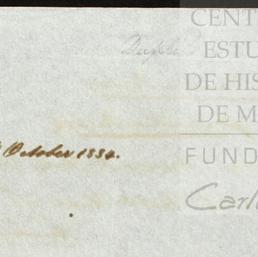 CENT
ESTU
DE HIS
DE M
FUND
Carl
October 1834.